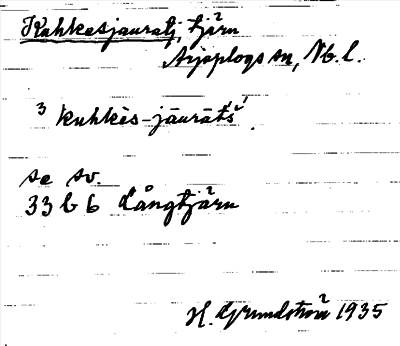 Kuhkesjauratj, tjärn
Arjeplogs sn, Nb. l.
3 kuhkès-jāurātš́.
se sv.
33 b 6 Långtjärn
H. Grundström 1935